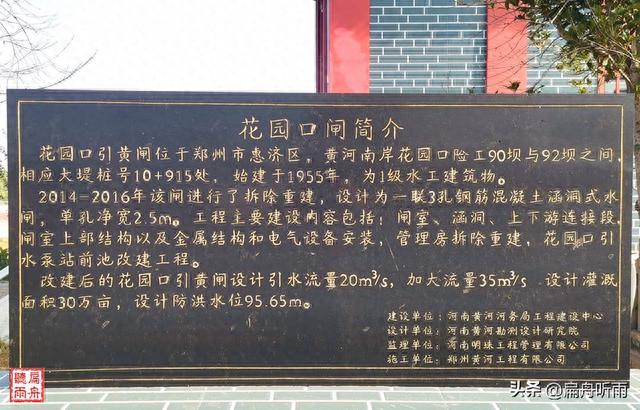 花园口闸简介
花园口引黄闸位于郑州市惠济区,黄河南岸花园口险工90坝与92坝之间,
相应大堤桩号10+915处,始建于1955年,为1级水工建筑物。
2014-2016年该闸进行了拆除重建,设计为一联3孔钢筋混凝土涵洞式水
闸,单孔净宽2.5m。工程主要建设内容包括:闸室、涵洞、上下游连接段,
闸室上部结构以及金属结构和电气设备安装,管理房拆除重建,花园口引
水泵站前池改建工程。
改建后的花园口引黄闸设计引水流量20m³/s,加大流量35m³/s 设计灌溉
面积30万亩,设计防洪水位95.65m。
建设单位:河南黄河河务局工程建设中心
设计单位:河南黄河勘测设计研究院
监理单位:河南明珠工程管理有限公司
施工单位:郑州黄河工程有限公司
扁舟聽雨
头条 @扁舟听雨